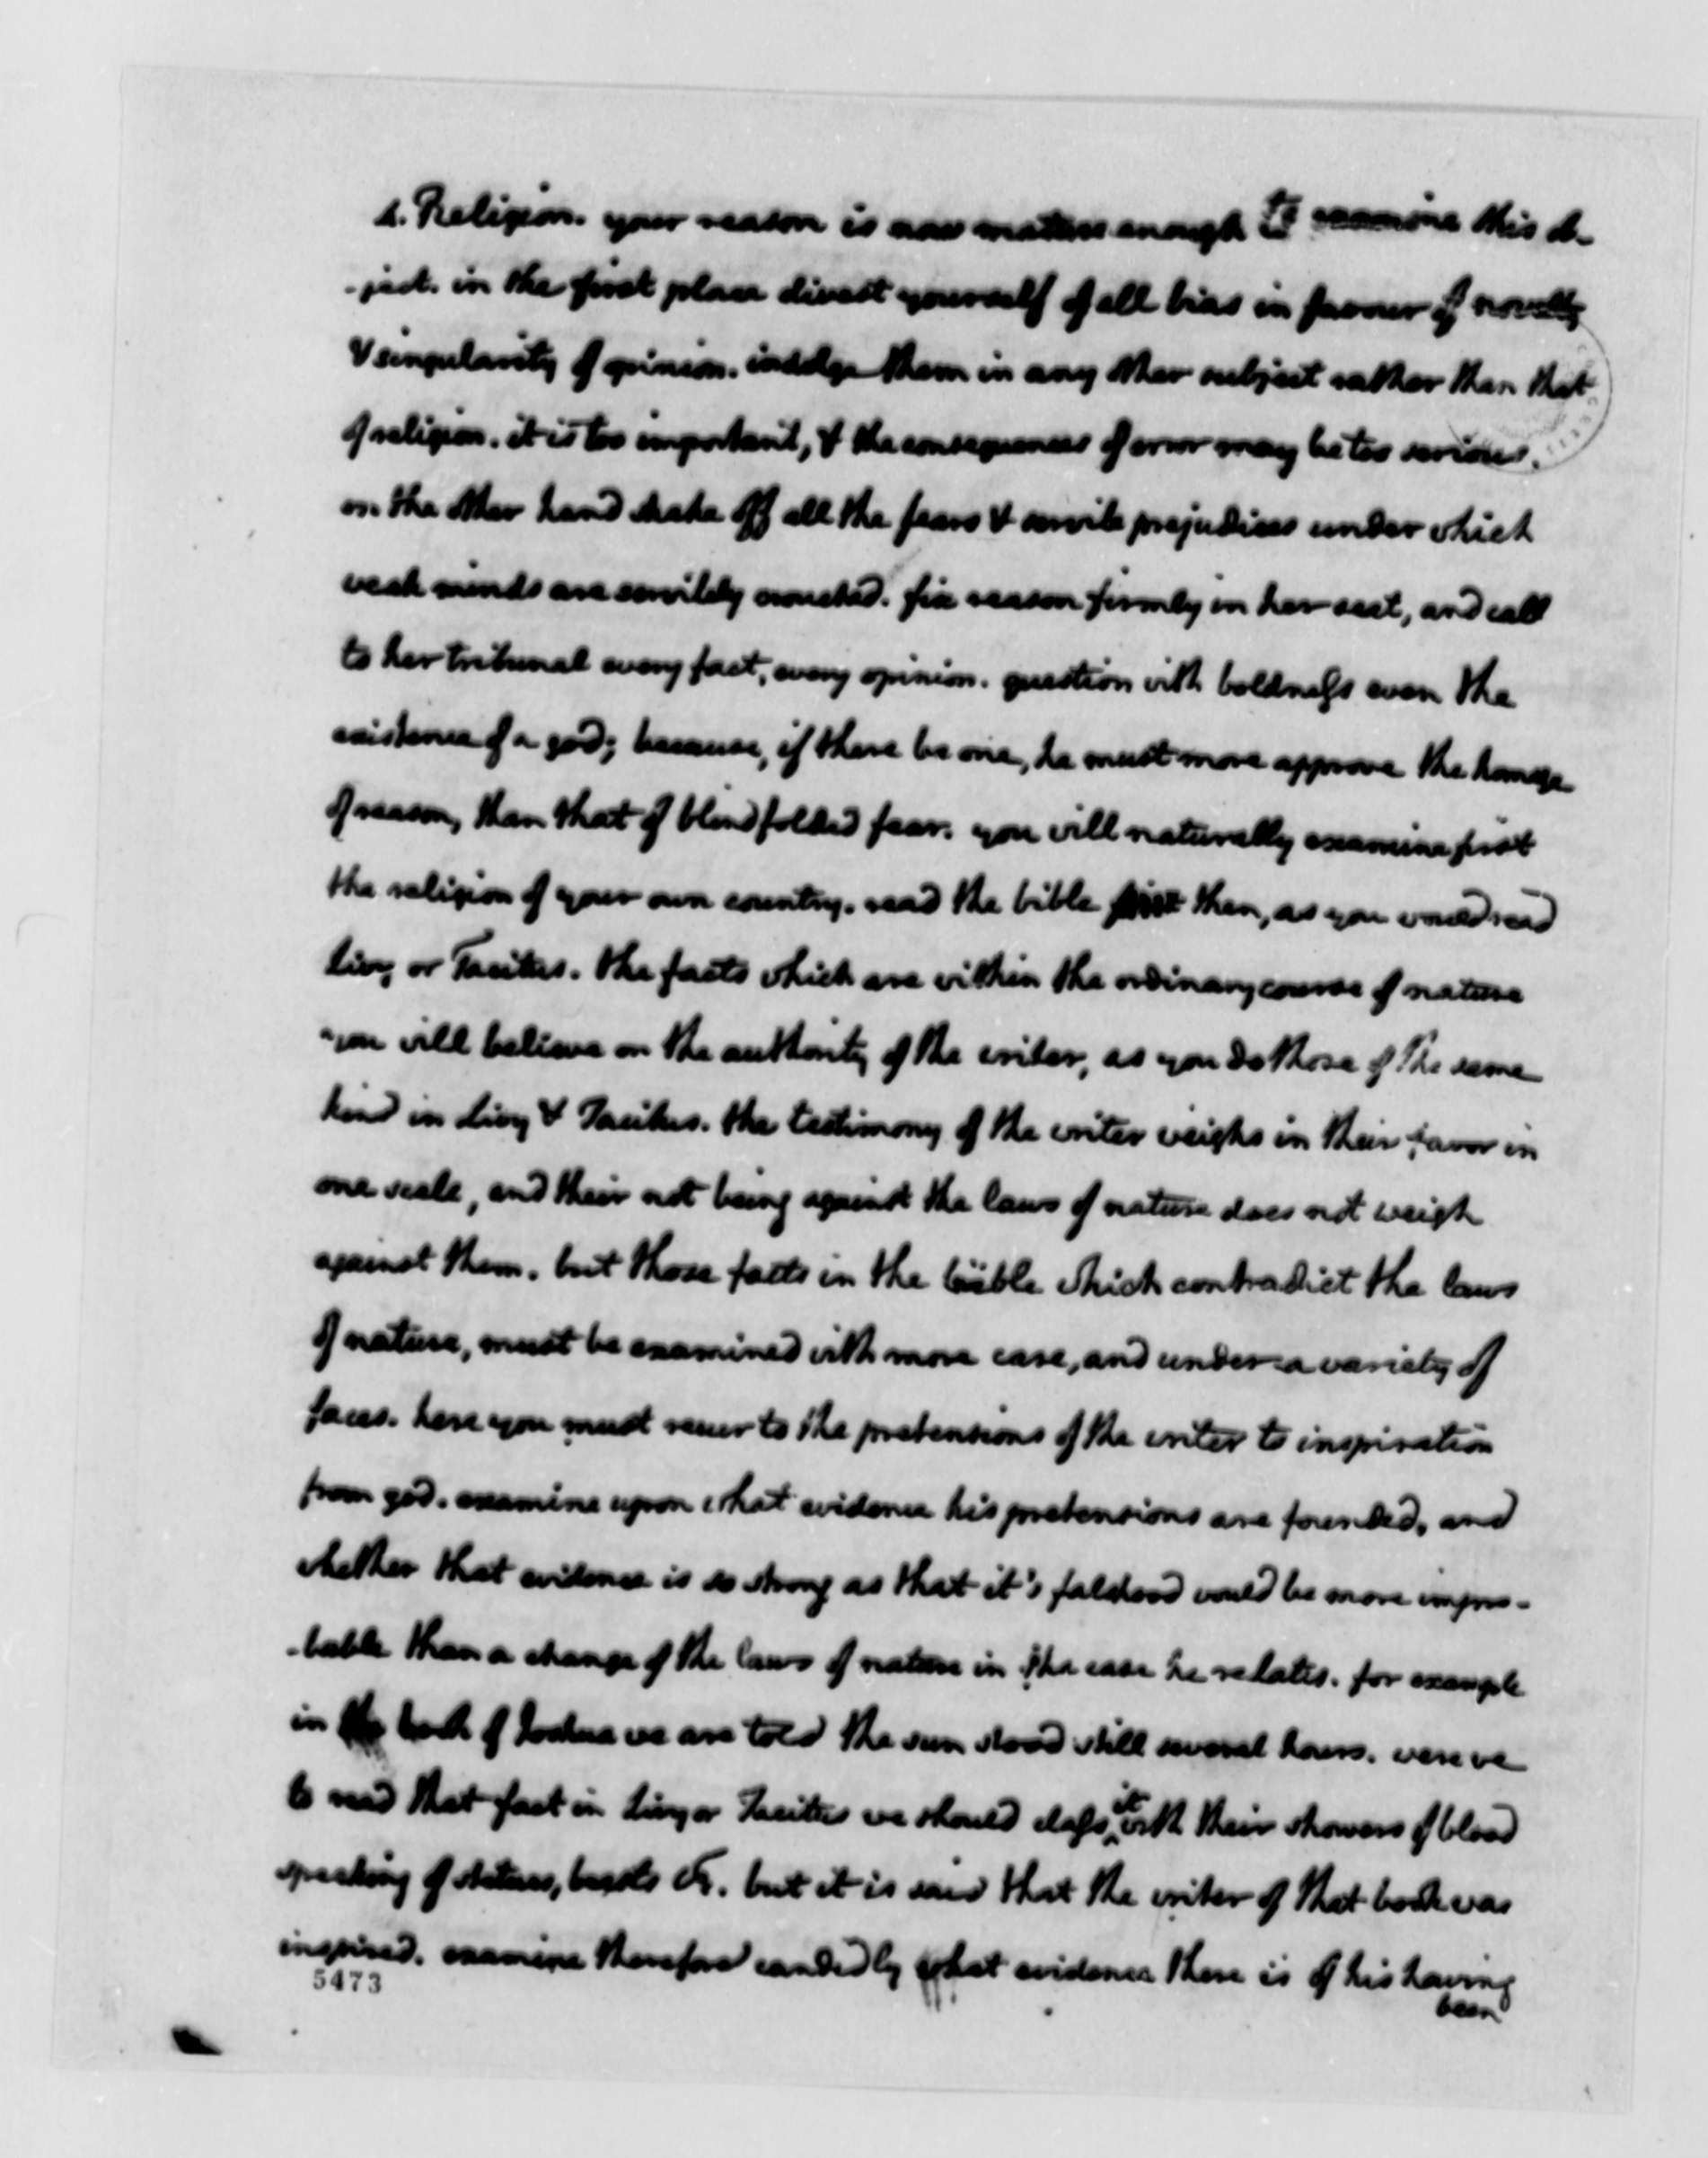 4. Religion. your reason is now mature enough to examine this ob-
-ject. in the first place divest yourself of all bias in favour of novelty
& singularity of opinion. indulge them in any other subject rather than that
of religion. it is too important, & the consequences of error may be too serious.
on the other hand shake off all the fears & servile prejudices under which
weak minds are servilely crouched. fix reason firmly in her seat, and call
to her tribunal every fact, every opinion. question with boldness even the
existence of a god; because, if there be one, he must more approve the homage
of reason, than that of blindfolded fear. you will naturally examine first
the religion of your own country. read the bible first then, as you would read
Livy or Tacitus. the facts which are within the ordinary course of nature
you will believe on the authority of the writer, as you do those of the same
kind in Livy & Tacitus. the testimony of the writer weighs in their favor in
one scale, and their not being against the laws of nature does not weigh
against them. but those facts in the bible which contradict the laws
of nature, must be examined with more care, and under a variety of
faces. here you must recur to the pretensions of the writer to inspiration
from god. examine upon what evidence his pretensions are founded, and
whether that evidence is so strong as that it's falshood would be more impro-
-bable than a change of the laws of nature in the case he relates. for example
in the book of Joshua we are told the sun stood still several hours. were we
to read that fact in Livy or Tacitus we should class it with their showers of blood
speaking of statues, beasts &c. but it is said that the writer of that book was
inspired. examine therefore candidly what evidence there is of his having
been
5473